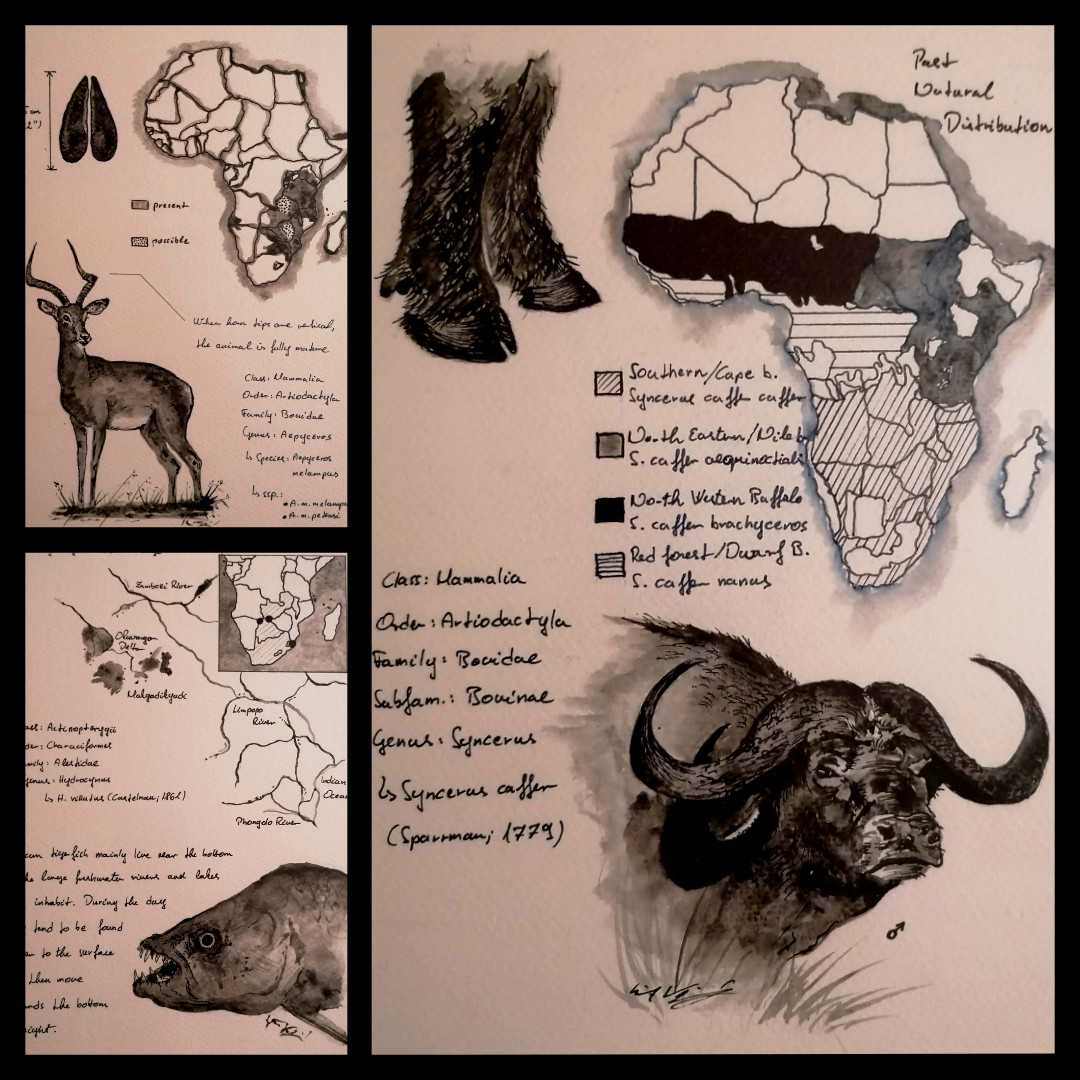 present
possible
When horn tips are vertical,
the animal is fully mature
Class: Mammalia
Order: Artiodactyla
Family: Bovidae
Genus: Aepyceros
↳ Species: Aepyceros
melampus
↳ ssp.:
• A. m. melampu
• A. m. petersi
Zambezi River
Okavango
Delta
Makgadikgadi
Limpopo
River
Indian
Ocean
Phongolo River
ass: Actinopterygii
der: Characiformes
mily: Alestidae
genus: Hydrocynus
↳ H. vittatus (Castelnau, 1861)
can tigerfish mainly live near the bottom
he large freshwater rivers and lakes
inhabit. During the day
tend to be found
er to the surface
then move
ards the bottom
night.
Past
Natural
Distribution
Southern/Cape b.
Syncerus caffer caffer
North Eastern/Nile b.
S. caffer aequinoctiali
North Western Buffalo
S. caffer brachyceros
Red forest/Dwarf B.
S. caffer nanus
Class: Mammalia
Order: Artiodactyla
Family: Bovidae
Subfam.: Bovinae
Genus: Syncerus
↳ Syncerus caffer
(Sparrman; 1779)
♂